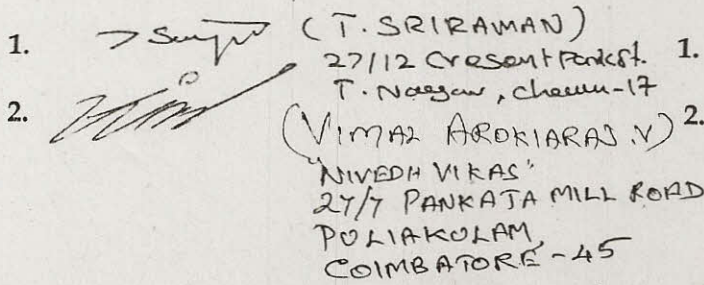 1. (T. SRIRAMAN) 1.
27/12 Cresent Park st.
T. Nagar, Chennai-17
2. (VIMAL AROKIARAJ .V) 2.
"NIVEDH VIKAS"
27/7 PANKAJA MILL ROAD
PULIAKULAM,
COIMBATORE - 45